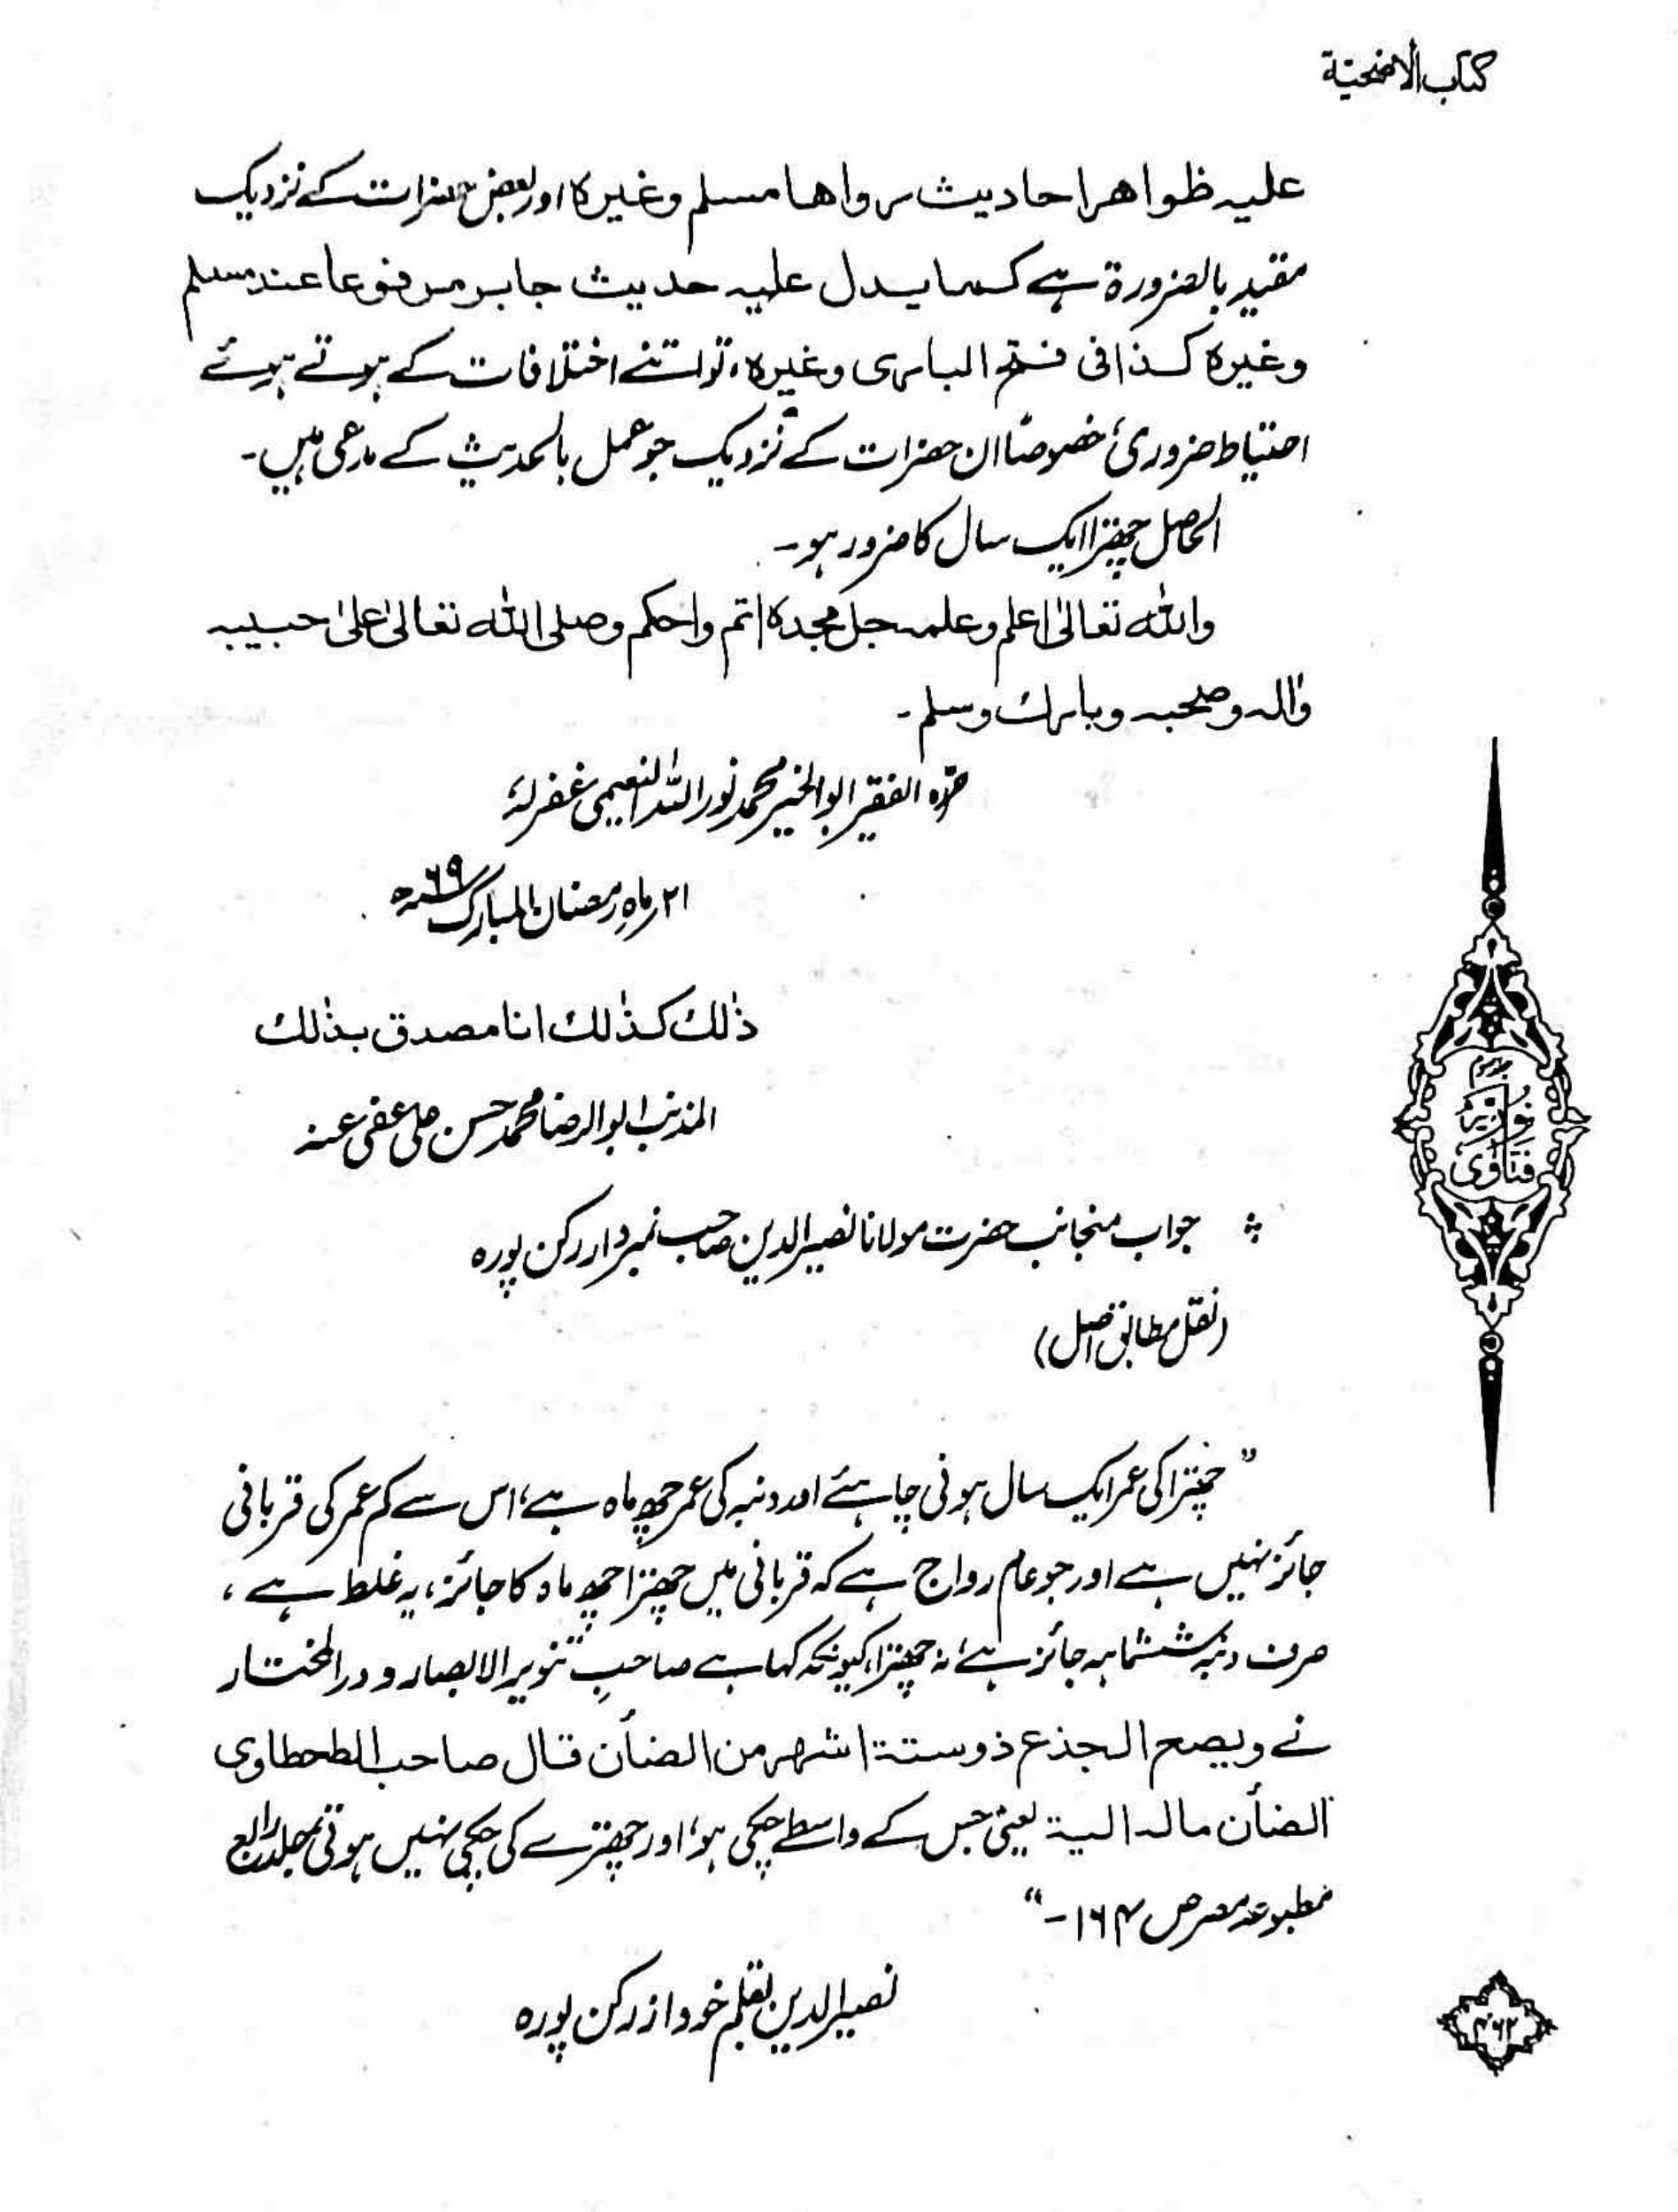 کتاب الاضحیّة
علیہ ظواھر احادیث رواھا مسلم وغیرہ اور بعض حضرات کے نزدیک
مقید بالضرورة ہے کما یدل علیہ حدیث جابر مرفوعا عند مسلم
وغیرہ کذا فی فتح الباری وغیرہ، تو اتنے اختلافات کے ہوتے ہوئے
احتیاط ضروری، خصوصًا ان حضرات کے نزدیک جو عمل بالحدیث کے مدعی ہیں۔
الحاصل چھترا ایک سال کا ضرور ہو۔
واللہ تعالیٰ اعلم وعلمہ جل مجدہ اتم واحکم وصلی اللہ تعالیٰ علیٰ حبیبہ
واٰلہ وصحبہ وبارك وسلم۔
حرّرہ الفقیر ابو الخیر محمد نور اللہ النعیمی غفرلہٗ
۲۱ ماہِ رمضان المبارک ۶۹ھ
ذٰلك كذٰلك انا مصدق بذٰلك
المذنب ابو الرضا محمد حسن علی عفی عنہ
جواب منجانب حضرت مولانا نصیر الدین صاحب نمبردار رکن پورہ
(نقل مطابق اصل)
”چھترا کی عمر ایک سال ہونی چاہئے اور دنبہ کی عمر چھ ماہ ہے، اس سے کم عمر کی قربانی
جائز نہیں ہے اور جو عام رواج ہے کہ قربانی میں چھترا چھ ماہ کا جائز، یہ غلط ہے،
صرف دنبہ ششماہہ جائز ہے، نہ چھترا، کیونکہ کہا ہے صاحبِ تنویر الابصار و در المختار
نے ویصح الجذع ذوستة اشھر من الضأن قال صاحب الطحطاوی
الضأن مالہ الیة یعنی جس کے واسطے چکی ہو، اور چھترے کی چکی نہیں ہوتی، جلد رابع
مطبوعہ مصر ص ۱۶۴۔“
نصیر الدین بقلم خود از رکن پورہ
نوریہ
فتاویٰ
۴۶۲